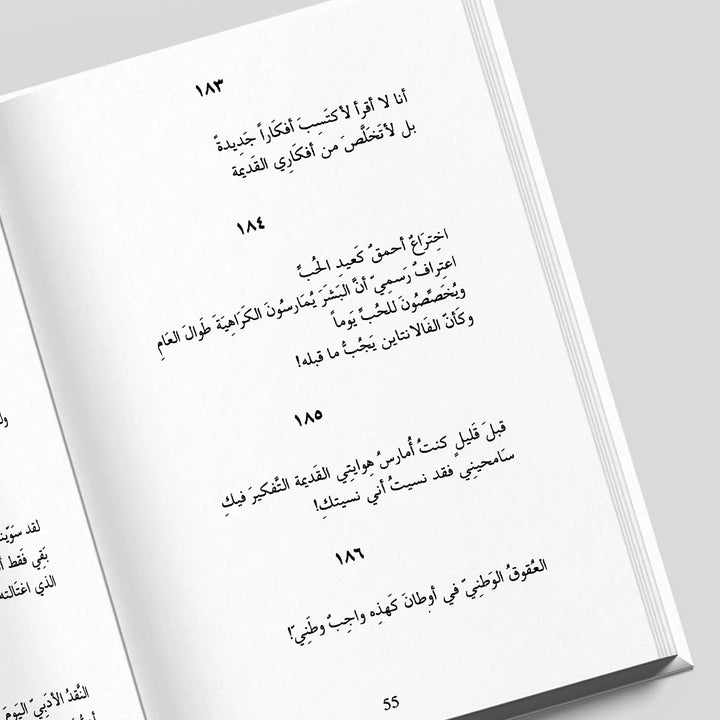 ١٨٣
أنا لا أقرأ لأكتَسِبَ أفكَاراً جَدِيدةً
بل لأتَخَلَّصَ من أفكَارِي القَديمة
١٨٤
اختِرَاعٌ أحمقٌ كَعيدِ الحُبِّ
اعتِرافٌ رَسمِيّ أنَّ البَشَرَ يُمَارسُونَ الكَرَاهِيَةَ طَوالَ العَامِ
ويُخَصِّصُونَ للحُبِّ يَوماً
وكَأنّ الفَالانتاين يَجُبُّ ما قبله!
١٨٥
قبلَ قَليلٍ كنتُ أُمارسُ هِوايتِي القَديمة التَّفكيرَ فيكِ
سَامحيني فقد نسيتُ أني نسيتكِ!
١٨٦
العُقوقُ الوَطنِيّ في أوطانَ كَهذِه واجِبٌ وطَنِيّ!
55
لقد سَوّينا
بَقِي فَقط
الذي اغتَالته
النَّقدُ الأدَبِيّ اليَومَ